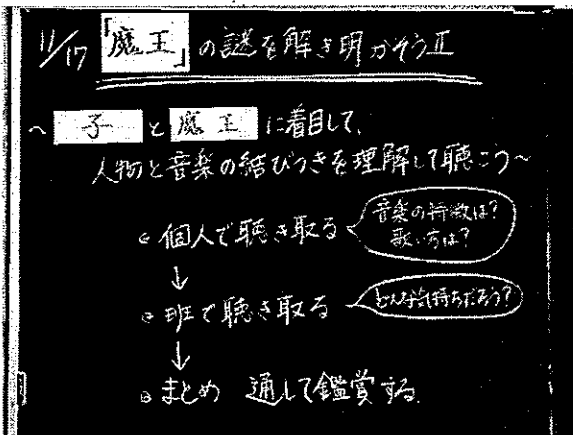 11/17 「魔王」の謎を解き明かそうⅡ
~ 子 と 魔王 に着目して、
人物と音楽の結びつきを理解して聴こう~
◦個人で聴き取る
音楽の特徴は?
歌い方は?
↓
◦班で聴き取る
どんな気持ちだろう?
↓
◦まとめ 通して鑑賞する